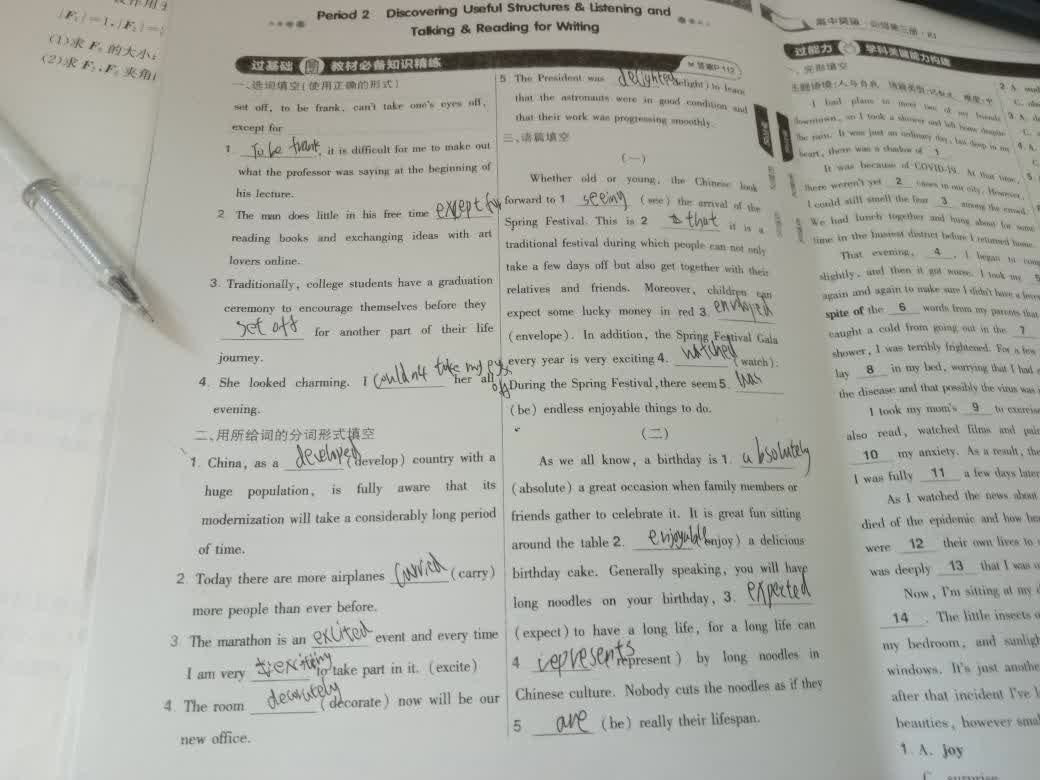 |F₁|=1,|F₂|=
(1)求 F₃ 的大小;
(2)求 F₂,F₃ 夹角
Period 2 Discovering Useful Structures & Listening and
Talking & Reading for Writing
过基础 教材必备知识精练
答案P112
一、选词填空(使用正确的形式)
set off, to be frank, can't take one's eyes off,
except for
1. To be frank, it is difficult for me to make out
what the professor was saying at the beginning of
his lecture.
2 The man does little in his free time except for
reading books and exchanging ideas with art
lovers online.
3. Traditionally, college students have a graduation
ceremony to encourage themselves before they
set off for another part of their life
journey.
4. She looked charming. I couldn't take my eyes off her all
evening.
二、用所给词的分词形式填空
1. China, as a developed (develop) country with a
huge population, is fully aware that its
modernization will take a considerably long period
of time.
2 Today there are more airplanes carried (carry)
more people than ever before.
3 The marathon is an excited event and every time
I am very exciting to take part in it. (excite)
4. The room decorately (decorate) now will be our
new office.
5 The President was delighted (delight) to learn
that the astronauts were in good condition and
that their work was progressing smoothly.
三、语篇填空
(一)
Whether old or young, the Chinese look
forward to 1 seeing (see) the arrival of the
Spring Festival. This is 2 that it is a
traditional festival during which people can not only
take a few days off but also get together with their
relatives and friends. Moreover, children can
expect some lucky money in red 3.
(envelope). In addition, the Spring Festival Gala
every year is very exciting 4. watched (watch).
During the Spring Festival, there seem 5.
(be) endless enjoyable things to do.
(二)
As we all know, a birthday is 1. absolutely
(absolute) a great occasion when family members or
friends gather to celebrate it. It is great fun sitting
around the table 2. enjoyable (enjoy) a delicious
birthday cake. Generally speaking, you will have
long noodles on your birthday, 3. expected
(expect) to have a long life, for a long life can
4 represents (represent) by long noodles in
Chinese culture. Nobody cuts the noodles as if they
5 are (be) really their lifespan.
过能力 学科关键能力构建
一、完形填空
I had plans to meet two of my friends
downtown, so I took a shower and left home despite
the rain. It was just an ordinary day, but deep in my
heart, there was a shadow of 1
It was because of COVID-19. At that time,
there weren't yet 2 cases in our city. However,
I could still smell the fear 3 among the crowd.
We had lunch together and hung about for some
time in the busiest district before I returned home.
That evening, 4 , I began to
slightly, and then it got worse. I took my
again and again to make sure I didn't have a fever
spite of the 6 words from my parents that
caught a cold from going out in the 7
shower, I was terribly frightened. For a few
lay 8 in my bed, worrying that I had
the disease and that possibly the virus was
I took my mom's 9 to exercise
also read, watched films and
10 my anxiety. As a result, the
I was fully 11 a few days later
As I watched the news about
died of the epidemic and how
were 12 their own lives to
was deeply 13 that I was
Now, I'm sitting at my
14 . The little insects
my bedroom, and sunligh
windows. It's just anothe
after that incident I've
beauties, however sma
1. A. joy
C. surprise